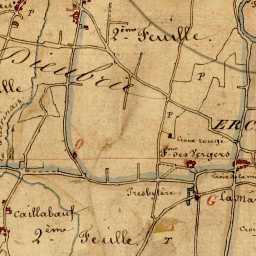 2.ème Feuille
Dieubrie
lle
P
P
ERC
Croix rouge
F.e des Vergers
O
Presbytère
G
la Ma
Caillabauf
2.ème Feuille
T
Croix